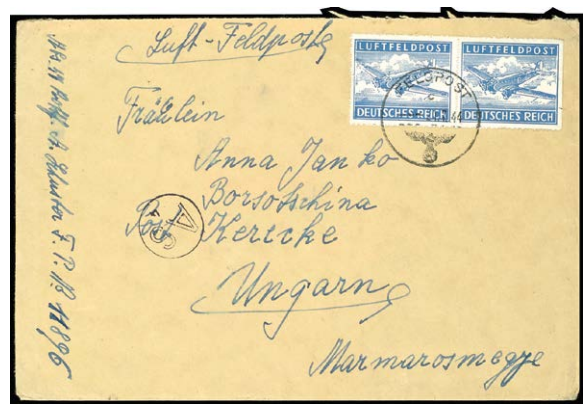 Luft-Feldpost
LUFTFELDPOST
DEUTSCHES REICH
LUFTFELDPOST
DEUTSCHES REICH
FELDPOST
c
44
Fräulein
Anna Janko
Borsotschina
Post Kertcke
AS
Ungarn
Marmarosmegye
F. P. No 11896